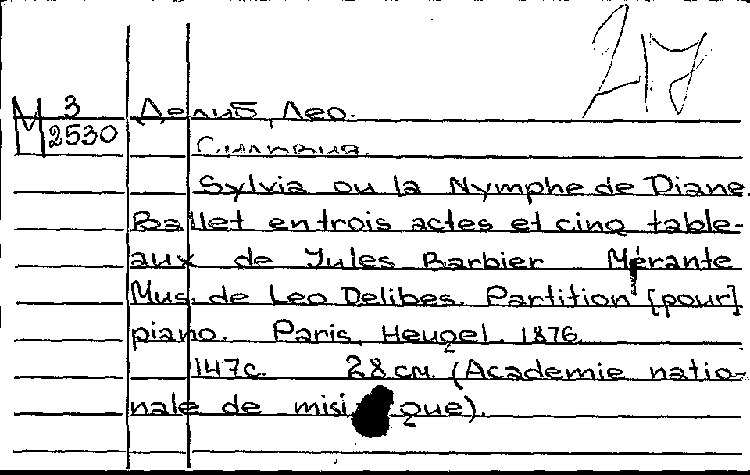 217
М 3 Делиб, Лео.
2530
Сильвия.
Sylvia ou la Nymphe de Diane.
Ballet en trois actes et cinq table-
aux de Jules Barbier Mérante
Mus. de Leo Delibes. Partition [pour]
piano. Paris, Heugel. 1876.
147с. 28 см. (Academie natio-
nale de misi que).